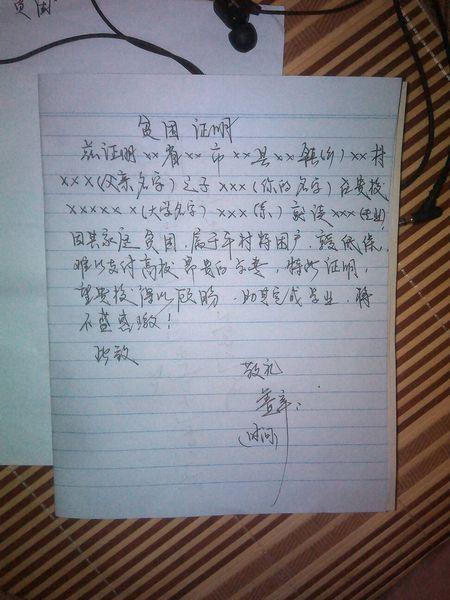 贫困
贫困证明
兹证明××省××市××县××镇(乡)××村
×××(父亲名字)之子×××(你的名字)在贵校
×××××(大学名字)×××(系)就读×××(专业)
因其家庭贫困,属于本村特困户,享低保,
难以支付高校昂贵的学费,特此证明,
望贵校得以照顾,助其完成学业,将
不盛感激!
此致
敬礼
盖章:
(时间)